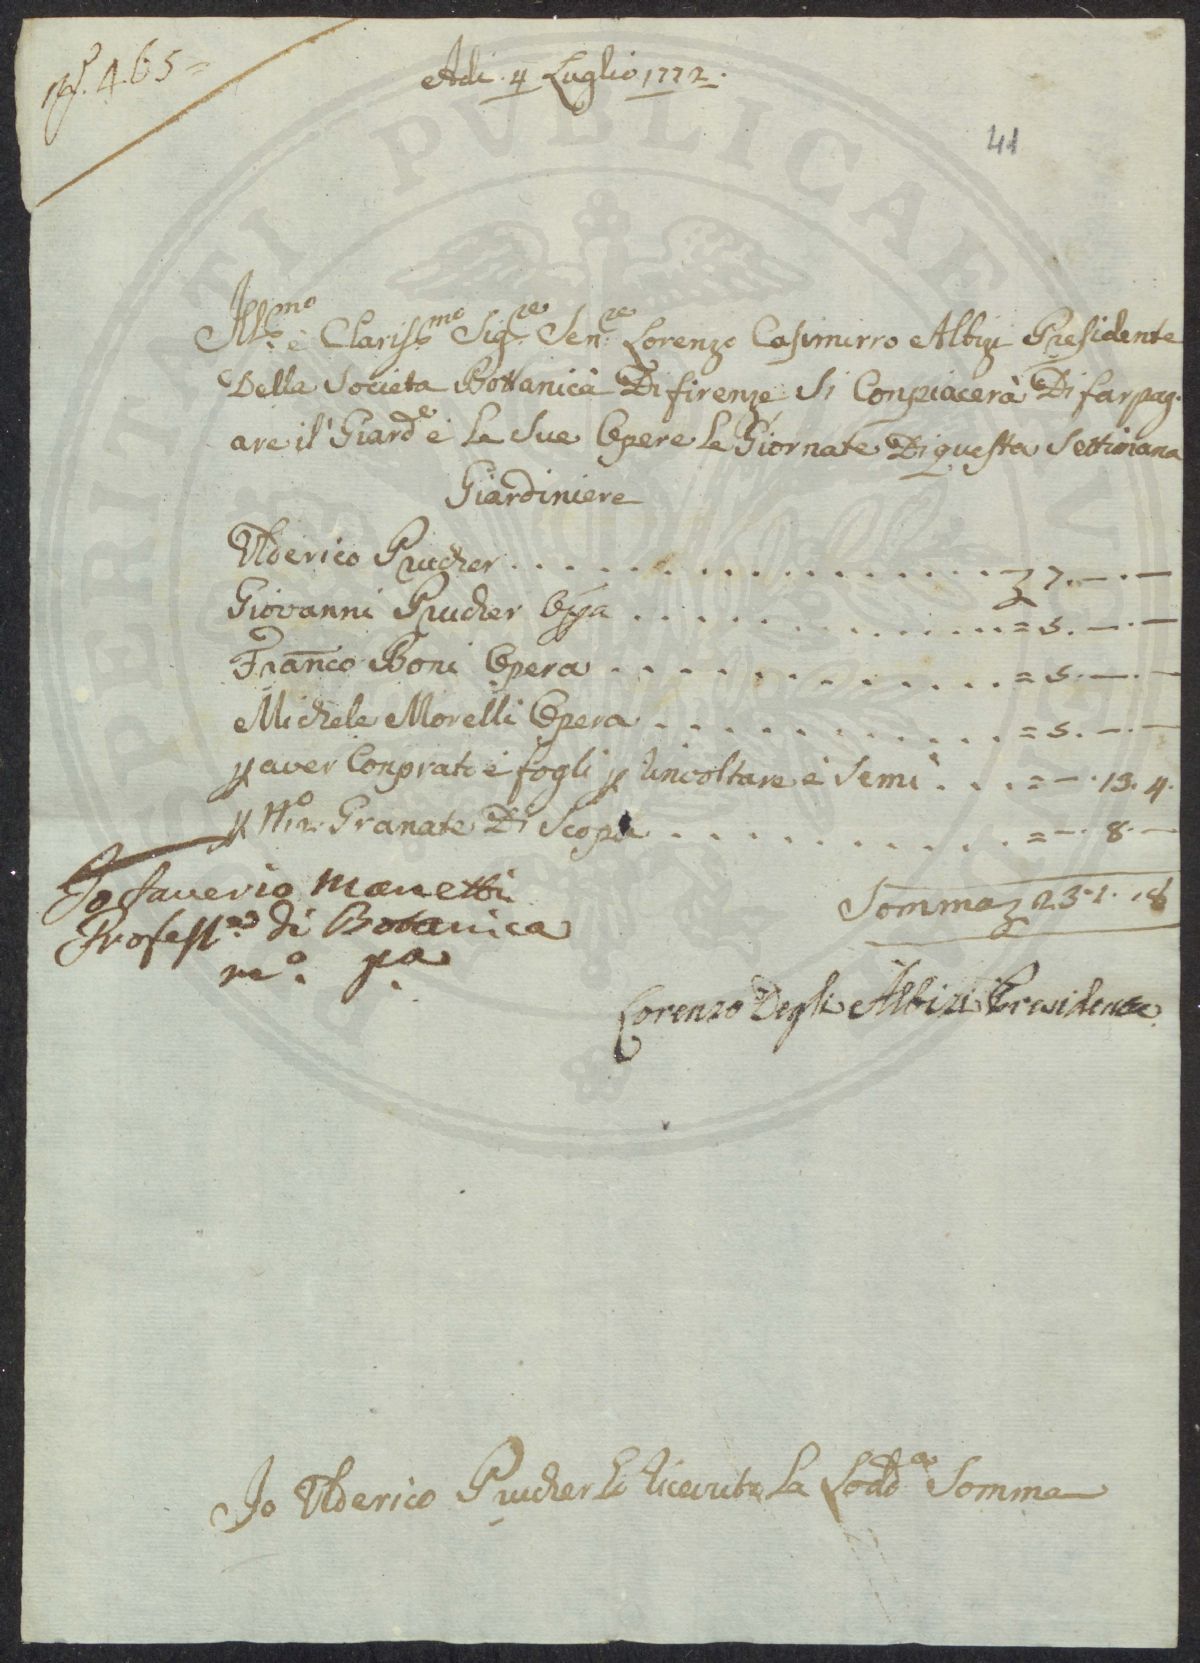 Nº. 465=
Adi. 4 Luglio 1772.
41
Ill.mo e Clariss.mo Sig.re Sen.re Lorenzo Casimirro Albizi Presidente
Della Societa Bottanica Di firenze Si Conpiacerà Di far pag-
are il' Giard.e e Le Sue Opere Le Giornate Di questa Settimana
Giardiniere
Ulderico Prucher . . . . . . . . . . . . . . . . . . 7. — . —
Giovanni Prucher Opa . . . . . . . . . . . . . . = 5. — . —
Franco Boni Opera . . . . . . . . . . . . . . = 5. — . —
Michele Morelli Opera . . . . . . . . . . . . . = 5. — . —
p aver Conprato e fogli p Rincoltare e Semi . . . = — . 13. 4.
p Nº 12. Granate Di Scopa . . . . . . . . . . . . = — . 8. —
Somma 23. 1. 8
Io Saverio Manetti
Profess.re di Botanica
mº. pa.
Lorenzo Degli Albizi Presidente
Io Ulderico Prucher ho Riceuto La Sodd.a Somma
PROSPERITATI PUBLICAE AUGENDAE